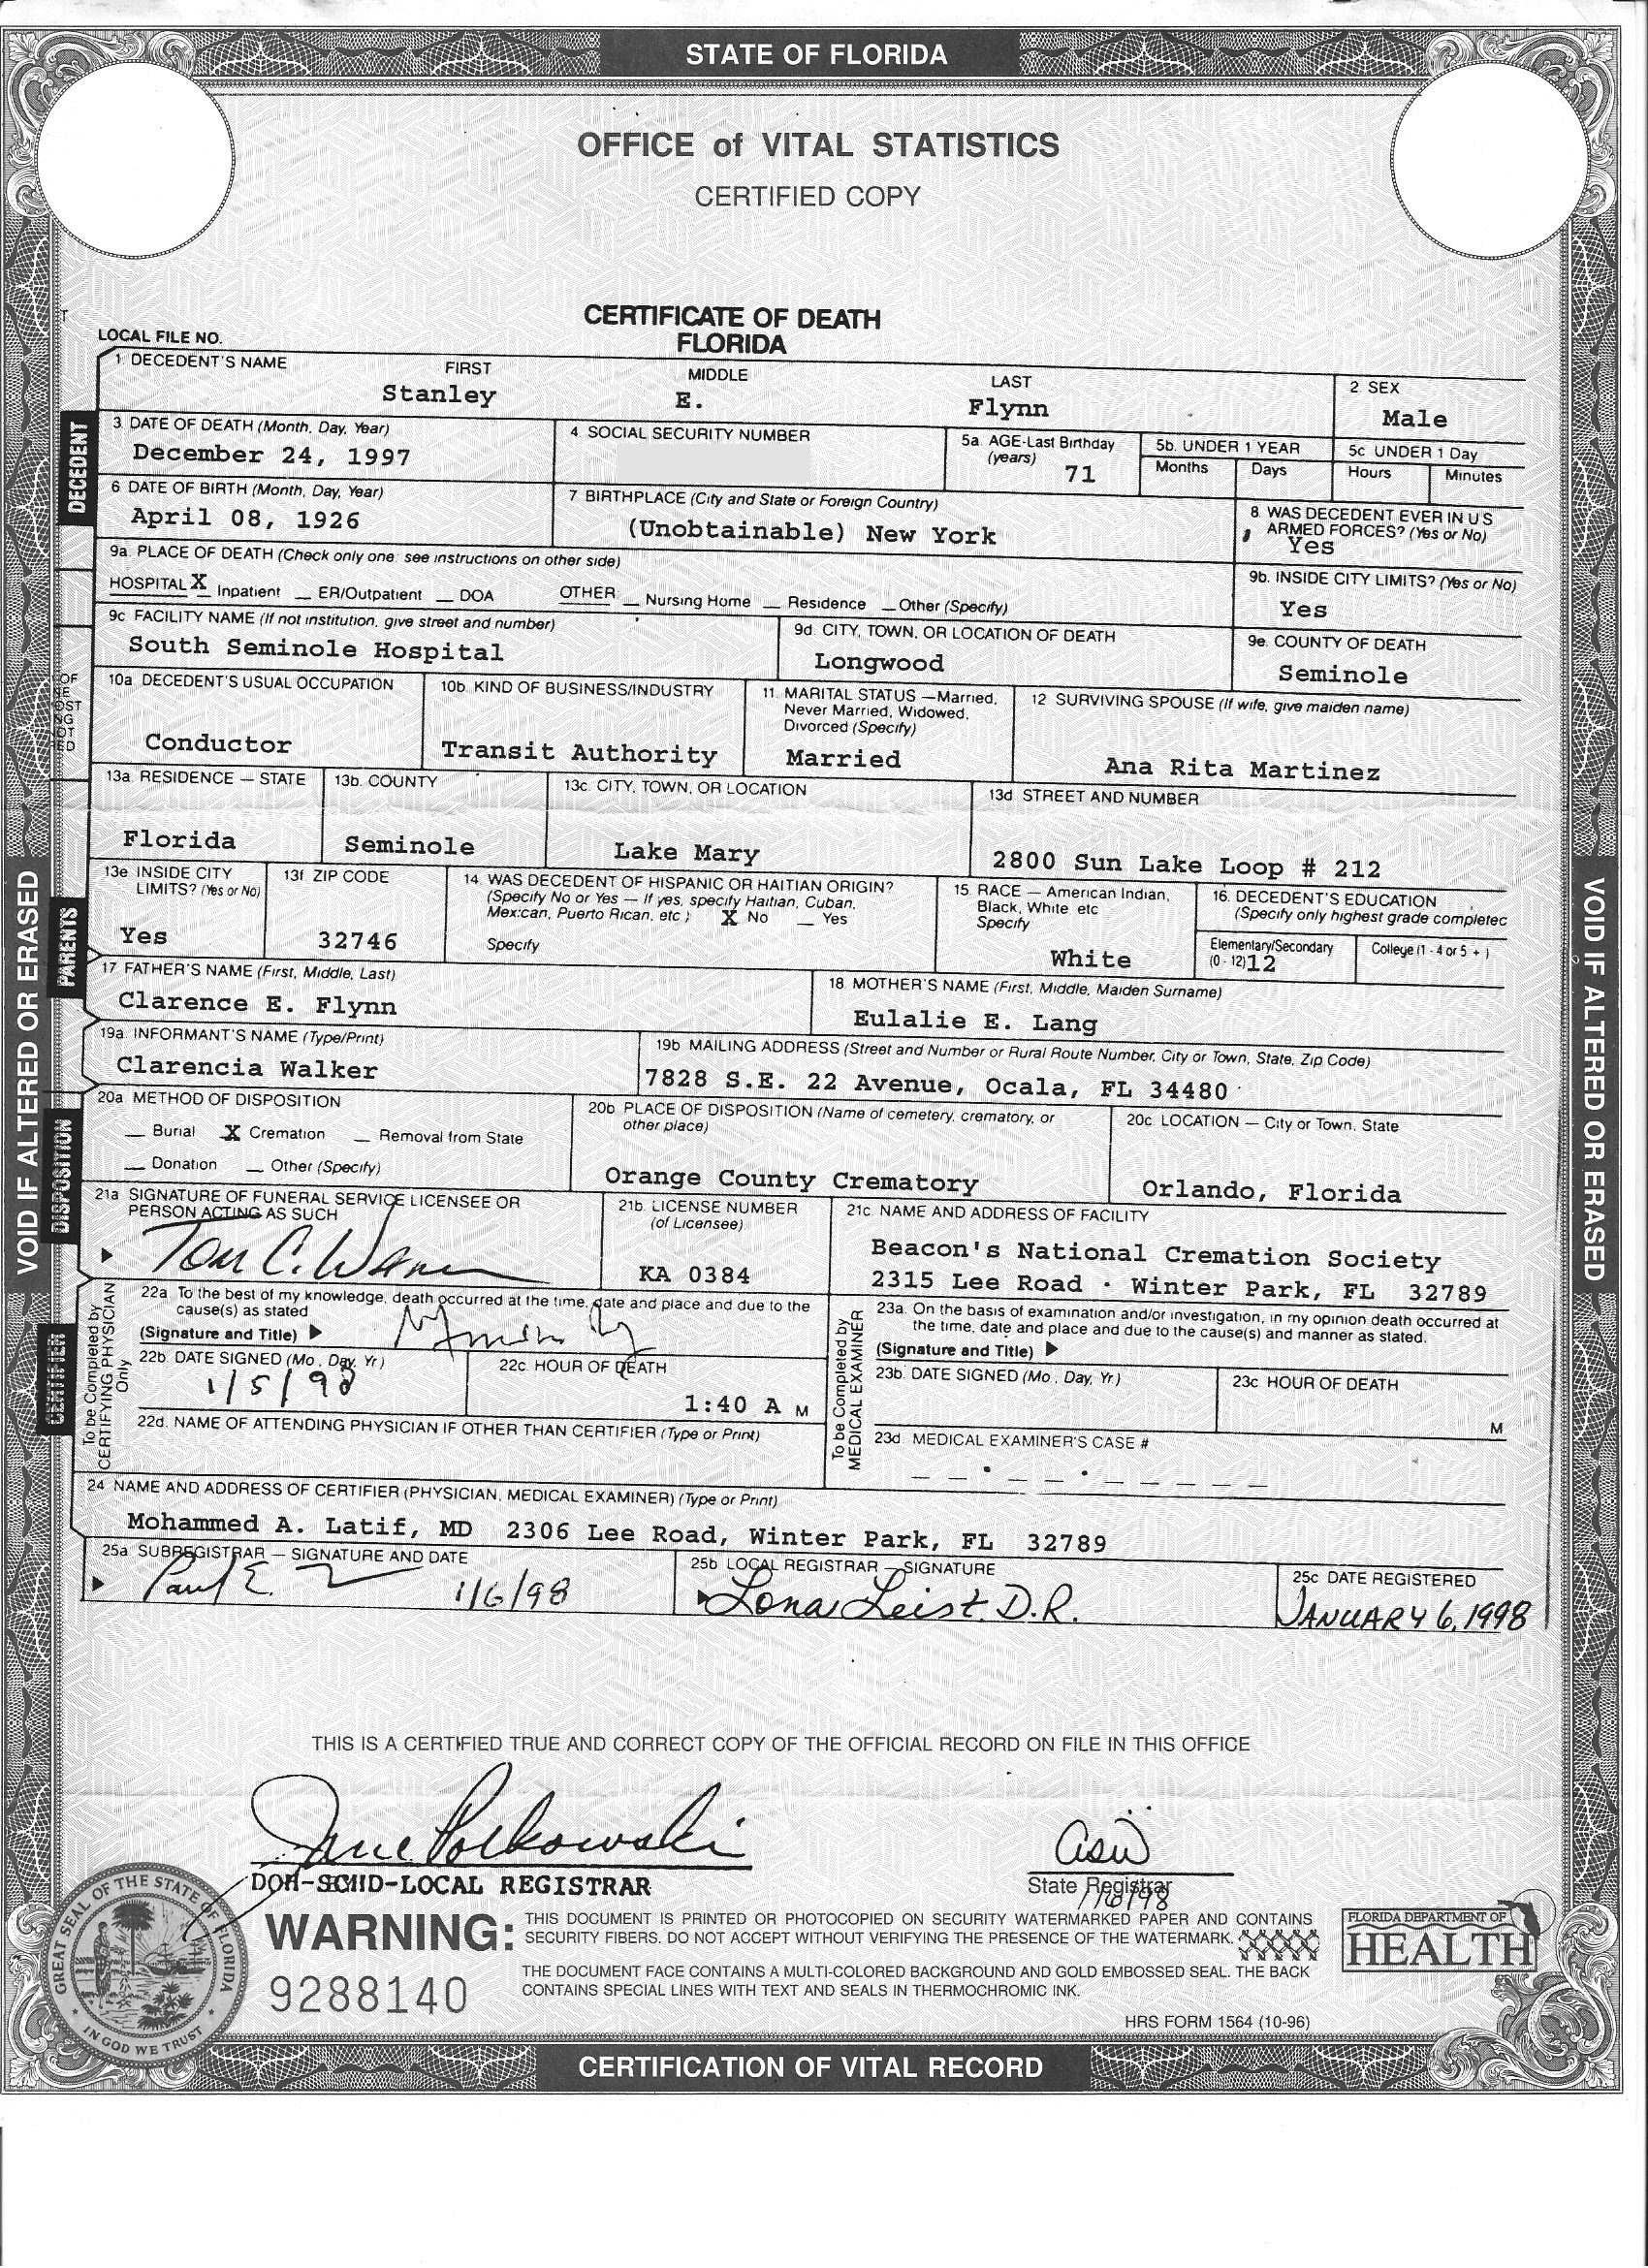 STATE OF FLORIDA
OFFICE of VITAL STATISTICS
CERTIFIED COPY
CERTIFICATE OF DEATH
FLORIDA
LOCAL FILE NO.
1 DECEDENT'S NAME FIRST MIDDLE LAST
Stanley E. Flynn
2 SEX
Male
DECEDENT
3 DATE OF DEATH (Month, Day, Year)
December 24, 1997
4 SOCIAL SECURITY NUMBER
5a AGE-Last Birthday
(years)
71
5b. UNDER 1 YEAR
Months Days
5c UNDER 1 Day
Hours Minutes
6 DATE OF BIRTH (Month, Day, Year)
April 08, 1926
7 BIRTHPLACE (City and State or Foreign Country)
(Unobtainable) New York
8 WAS DECEDENT EVER IN U S
ARMED FORCES? (Yes or No)
Yes
9a. PLACE OF DEATH (Check only one: see instructions on other side)
HOSPITAL X Inpatient _ ER/Outpatient _ DOA OTHER _ Nursing Home _ Residence _ Other (Specify)
9b. INSIDE CITY LIMITS? (Yes or No)
Yes
9c FACILITY NAME (If not institution, give street and number)
South Seminole Hospital
9d. CITY, TOWN, OR LOCATION OF DEATH
Longwood
9e. COUNTY OF DEATH
Seminole
10a DECEDENT'S USUAL OCCUPATION
Conductor
10b. KIND OF BUSINESS/INDUSTRY
Transit Authority
11. MARITAL STATUS —Married,
Never Married, Widowed,
Divorced (Specify)
Married
12 SURVIVING SPOUSE (If wife, give maiden name)
Ana Rita Martinez
13a. RESIDENCE — STATE
Florida
13b. COUNTY
Seminole
13c. CITY, TOWN, OR LOCATION
Lake Mary
13d STREET AND NUMBER
2800 Sun Lake Loop # 212
PARENTS
13e INSIDE CITY
LIMITS? (Yes or No)
Yes
13f. ZIP CODE
32746
14 WAS DECEDENT OF HISPANIC OR HAITIAN ORIGIN?
(Specify No or Yes — If yes, specify Haitian, Cuban,
Mexican, Puerto Rican, etc) X No _ Yes
Specify
15. RACE — American Indian,
Black, White etc
Specify
White
16. DECEDENT'S EDUCATION
(Specify only highest grade completec
Elementary/Secondary
(0 - 12) 12
College (1 - 4 or 5 + )
17 FATHER'S NAME (First, Middle, Last)
Clarence E. Flynn
18 MOTHER'S NAME (First, Middle, Maiden Surname)
Eulalie E. Lang
19a. INFORMANT'S NAME (Type/Print)
Clarencia Walker
19b MAILING ADDRESS (Street and Number or Rural Route Number, City or Town, State, Zip Code)
7828 S.E. 22 Avenue, Ocala, FL 34480
DISPOSITION
20a METHOD OF DISPOSITION
_ Burial X Cremation _ Removal from State
_ Donation _ Other (Specify)
20b PLACE OF DISPOSITION (Name of cemetery, crematory, or
other place)
Orange County Crematory
20c. LOCATION — City or Town, State
Orlando, Florida
21a SIGNATURE OF FUNERAL SERVICE LICENSEE OR
PERSON ACTING AS SUCH
21b. LICENSE NUMBER
(of Licensee)
KA 0384
21c. NAME AND ADDRESS OF FACILITY
Beacon's National Cremation Society
2315 Lee Road · Winter Park, FL 32789
CERTIFIER
To be Completed by
CERTIFYING PHYSICIAN
Only
22a. To the best of my knowledge, death occurred at the time, date and place and due to the
cause(s) as stated
(Signature and Title)
22b. DATE SIGNED (Mo., Day, Yr.)
1/5/98
22c. HOUR OF DEATH
1:40 A M
22d. NAME OF ATTENDING PHYSICIAN IF OTHER THAN CERTIFIER (Type or Print)
To be Completed by
MEDICAL EXAMINER
23a. On the basis of examination and/or investigation, in my opinion death occurred at
the time, date and place and due to the cause(s) and manner as stated.
(Signature and Title)
23b. DATE SIGNED (Mo., Day, Yr.)
23c HOUR OF DEATH
M
23d MEDICAL EXAMINER'S CASE #
24 NAME AND ADDRESS OF CERTIFIER (PHYSICIAN, MEDICAL EXAMINER) (Type or Print)
Mohammed A. Latif, MD 2306 Lee Road, Winter Park, FL 32789
25a SUBREGISTRAR — SIGNATURE AND DATE
Paul E. 1/6/98
25b LOCAL REGISTRAR — SIGNATURE
Lona Leist. D.R.
25c DATE REGISTERED
JANUARY 6, 1998
VOID IF ALTERED OR ERASED
VOID IF ALTERED OR ERASED
THIS IS A CERTIFIED TRUE AND CORRECT COPY OF THE OFFICIAL RECORD ON FILE IN THIS OFFICE
Jane Polkowski
DOH-SCHD-LOCAL REGISTRAR
State Registrar
1/6/98
GREAT SEAL OF THE STATE OF FLORIDA
IN GOD WE TRUST
WARNING:
THIS DOCUMENT IS PRINTED OR PHOTOCOPIED ON SECURITY WATERMARKED PAPER AND CONTAINS
SECURITY FIBERS. DO NOT ACCEPT WITHOUT VERIFYING THE PRESENCE OF THE WATERMARK.
THE DOCUMENT FACE CONTAINS A MULTI-COLORED BACKGROUND AND GOLD EMBOSSED SEAL. THE BACK
CONTAINS SPECIAL LINES WITH TEXT AND SEALS IN THERMOCHROMIC INK.
9288140
FLORIDA DEPARTMENT OF
HEALTH
HRS FORM 1564 (10-96)
CERTIFICATION OF VITAL RECORD